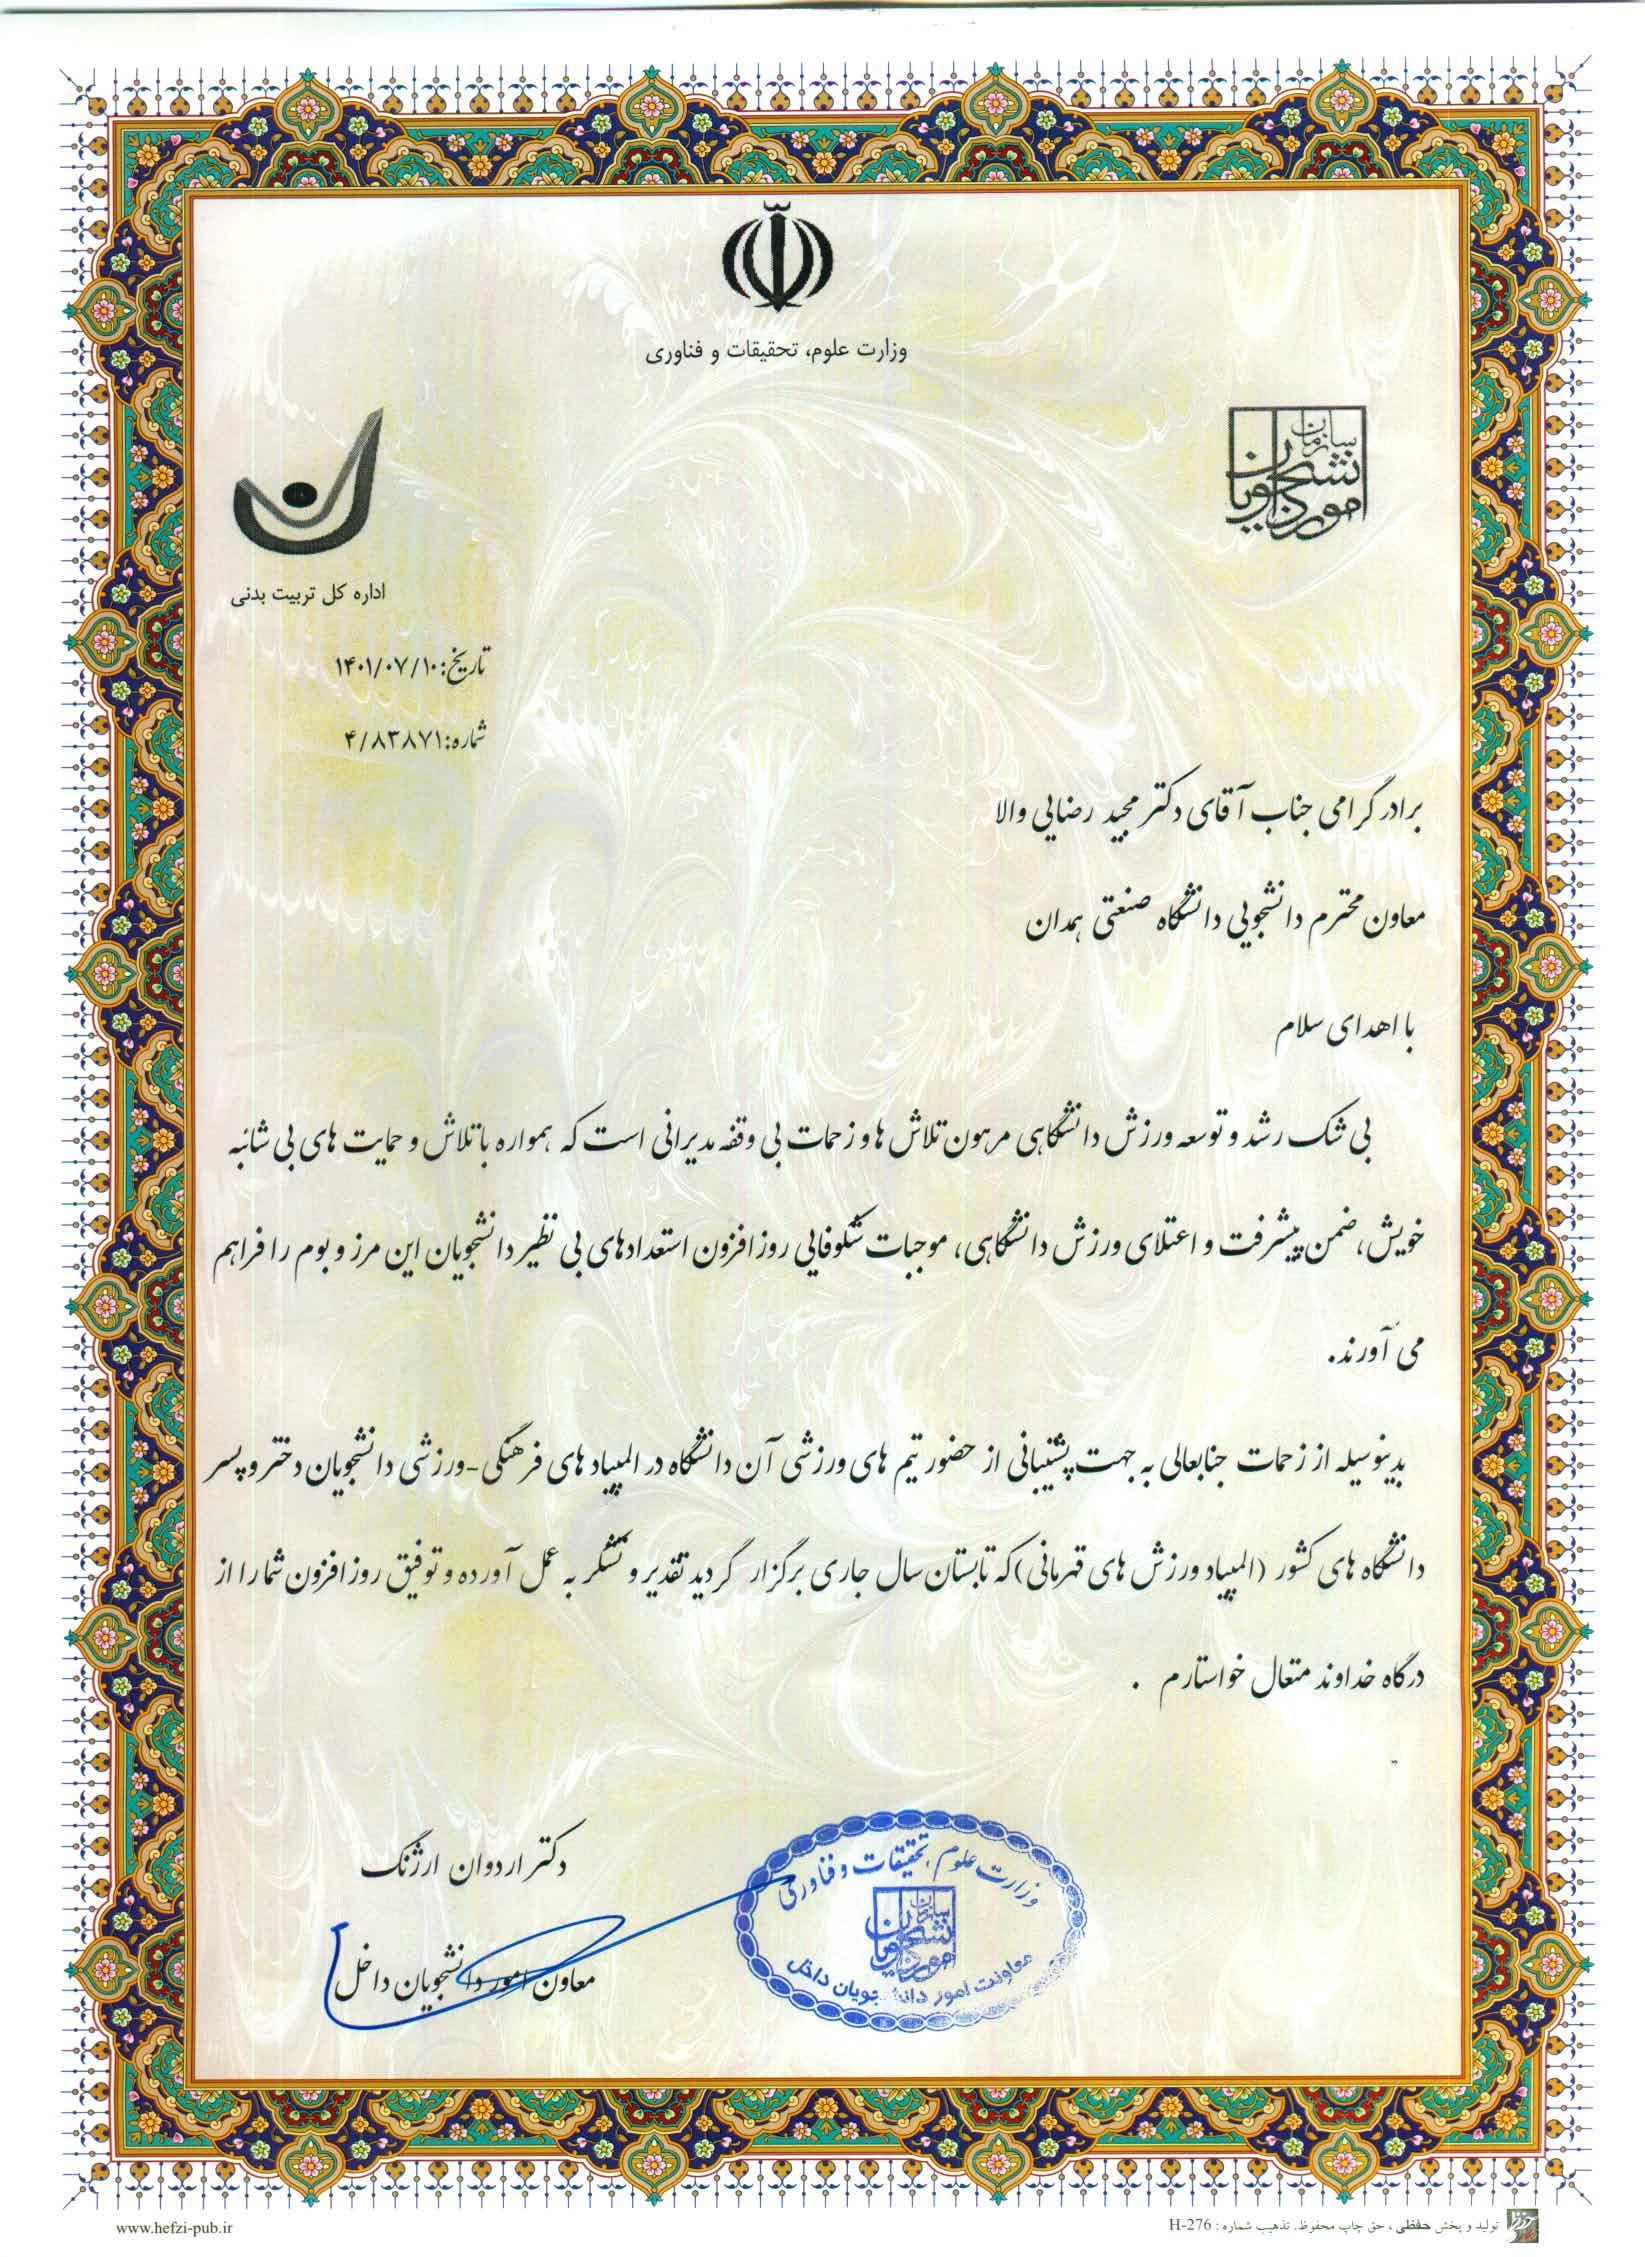 وزارت علوم، تحقیقات و فناوری
سازمان
امور دانشجویان
اداره کل تربیت بدنی
تاریخ: ۱۴۰۱/۰۷/۱۰
شماره: ۴/۸۳۸۷۱
برادر گرامی جناب آقای دکتر مجید رضایی والا
معاون محترم دانشجویی دانشگاه صنعتی همدان
با اهدای سلام
بی شک رشد و توسعه ورزش دانشگاهی مرهون تلاش ها و زحمات بی وقفه مدیرانی است که همواره با تلاش و حمایت های بی شائبه
خویش، ضمن پیشرفت و اعتلای ورزش دانشگاهی، موجبات شکوفایی روزافزون استعدادهای بی نظیر دانشجویان این مرز و بوم را فراهم
می آورند.
بدینوسیله از زحمات جنابعالی به جهت پشتیبانی از حضور تیم های ورزشی آن دانشگاه در المپیاد های فرهنگی-ورزشی دانشجویان دختر و پسر
دانشگاه های کشور (المپیاد ورزش های قهرمانی) که تابستان سال جاری برگزار گردید تقدیر و تشکر به عمل آورده و توفیق روزافزون شما را از
درگاه خداوند متعال خواستارم .
دکتر اردوان ارژنگ
معاون امور دانشجویان داخل
وزارت علوم، تحقیقات و فناوری
سازمان
امور دانشجویان
معاونت امور دانشجویان داخل
تولید و پخش حفظی، حق چاپ محفوظ. تذهیب شماره : H-276
www.hefzi-pub.ir